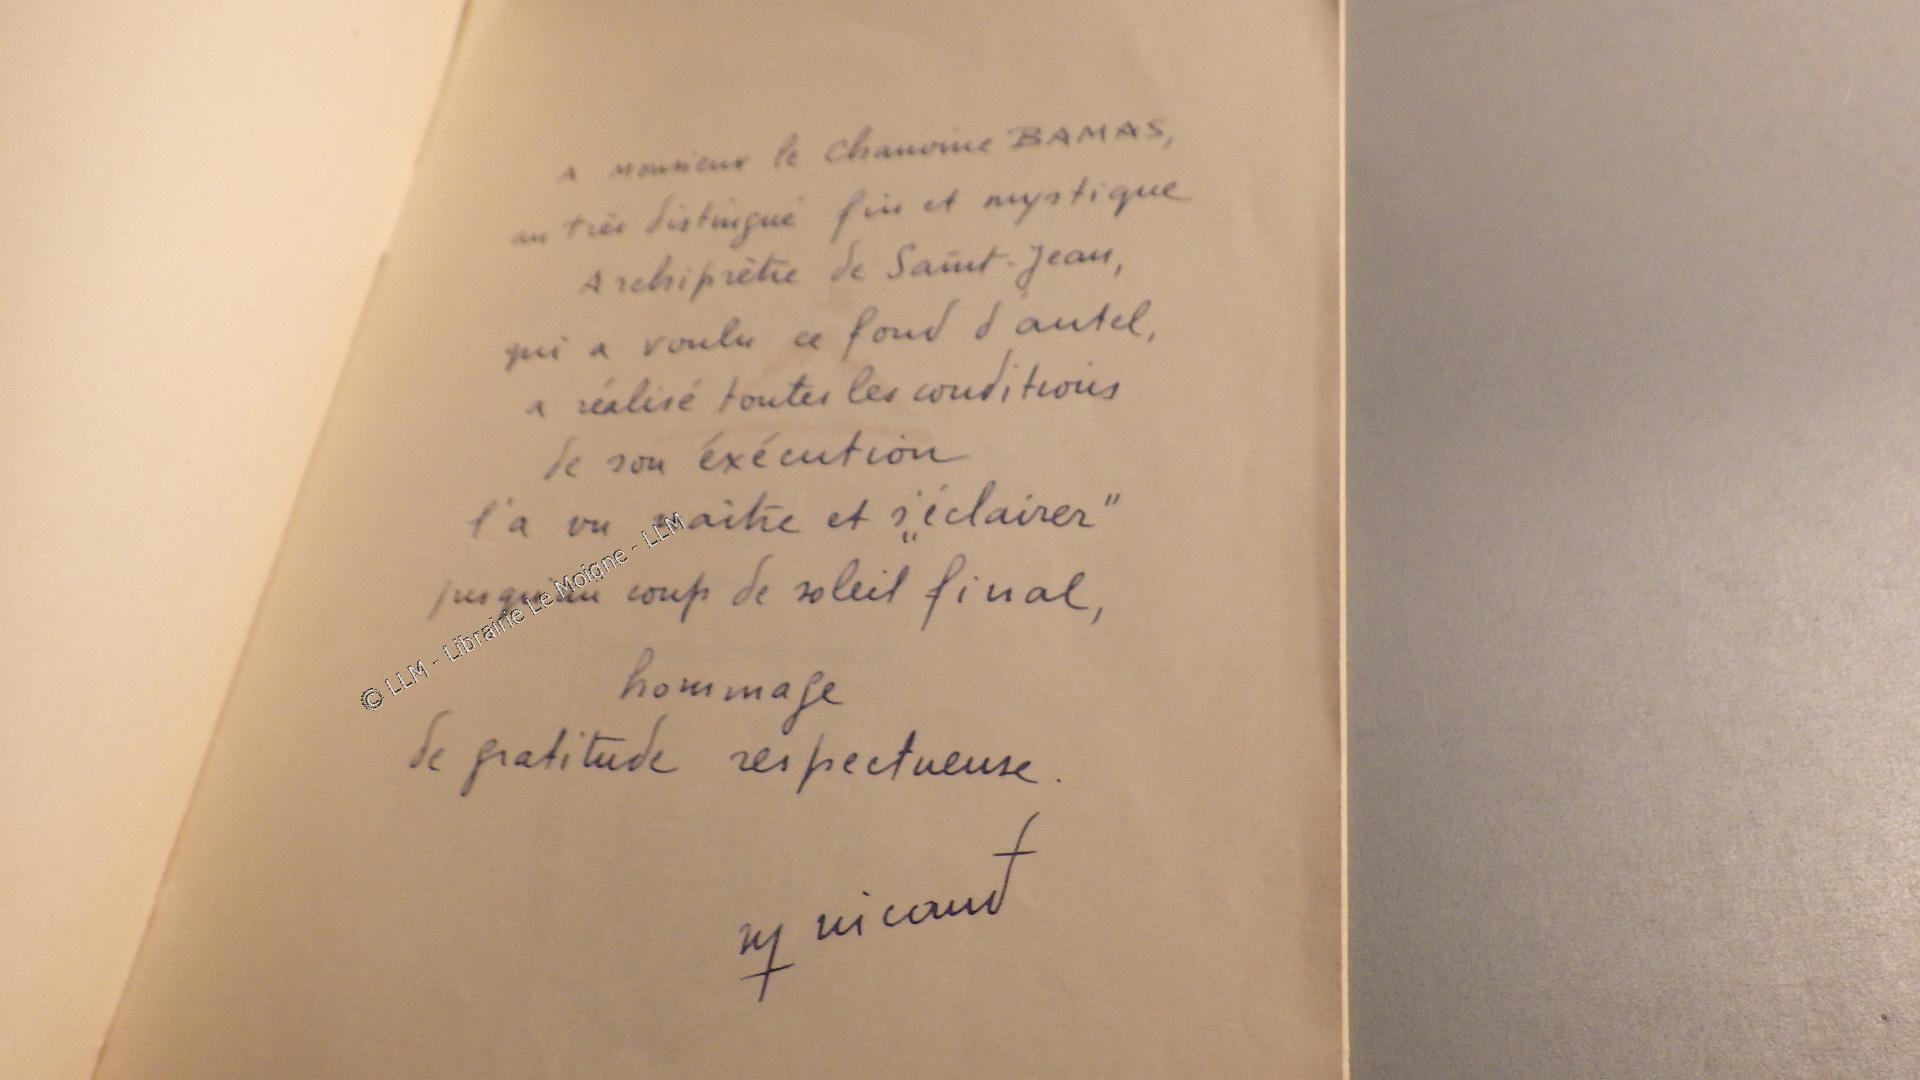 A Monsieur le Chanoine BAMAS,
au très distingué fin et mystique
Archiprêtre de Saint-Jean,
qui a voulu ce fond d'autel,
a réalisé toutes les conditions
de son éxécution
l'a vu naître et "s'éclairer"
jusqu'au coup de soleil final,
hommage
de gratitude respectueuse.
nicaud
© LLM - Librairie Le Moigne - LLM